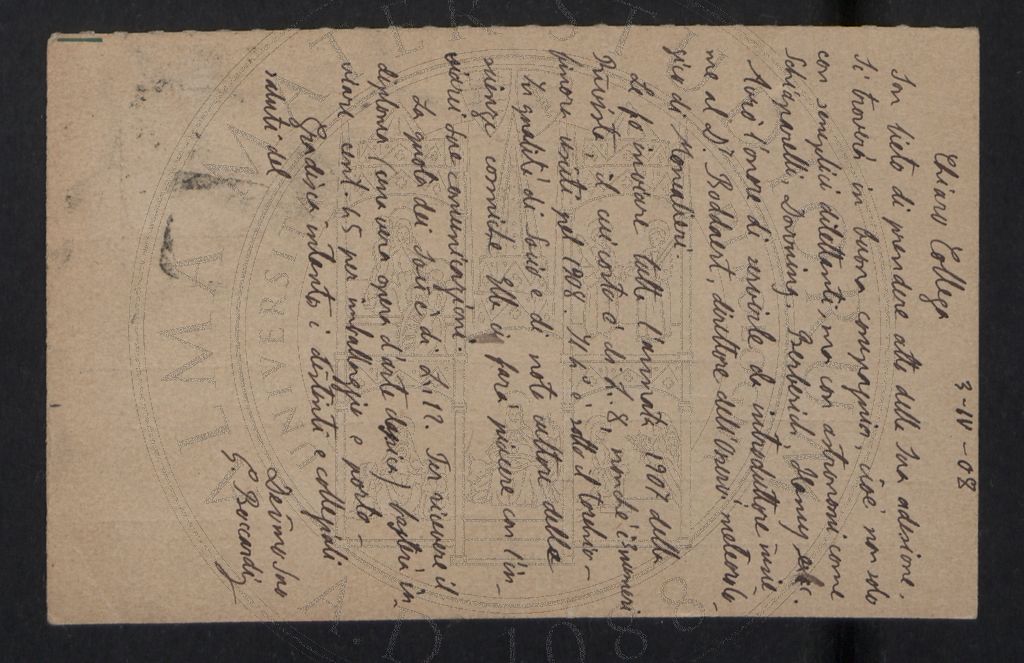 3-IV-08
Chiar.mo Collega
Son lieto di prendere atto della Sua adesione.
Si troverà in buona compagnia, cioè non solo
con semplici dilettanti, ma con astronomi come
Schiaparelli, Downing, Berberich, Hamy ecc.
Avrò l'onore di servirle da introduttore insie-
me al Dr Boddaert, direttore dell'Osserv. meteorolo-
gico di Moncalieri.
Le fo inviare tutta l'annata 1907 della
Rivista, il cui costo è di L. 8, nonchè i numeri
finora usciti pel 1908. Il n.° è sotto il torchio-
La qualità di Socio e di noto cultore delle
scienze cosmiche Ella ci farà piacere con l'in-
viarci sue comunicazioni.
La quota dei Soci è di L. 12. Per ricevere il
diploma (una vera opera d'arte) basterà in-
viare cent. 45 per imballaggio e porto-
Gradisca intanto i distinti e collegiali
saluti del
Devmo Suo
G Boccardi
ALMA MATER STUDIORUM
UNIVERSITÀ
A.D. 1088